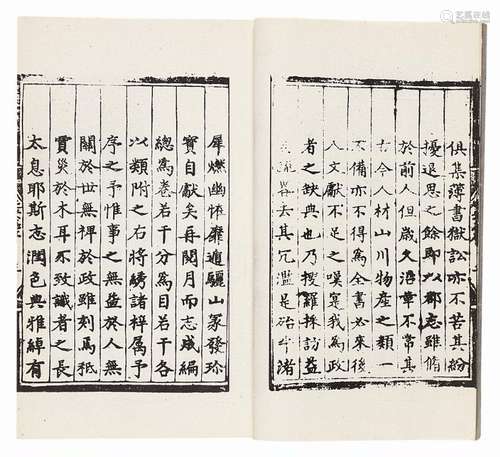 俱集薄書獄訟亦不苦其紛
擾退思之餘即以郡志雖脩
於前人但歲久沿革不常其
古今人材山川物產之類一
不備亦不得為全書必來後
人文獻不足之嘆寔我為政
者之缺典也乃搜羅採訪益
畧去其冗濫是殆牛渚
犀燃幽恠靡遁驪山冢發珍
寶自獻矣再閱月而志成編
總為卷若干分為目若干各
以類附之右將綉諸梓属予
序之予惟事之無益於人無
關於世無裨於政雖刻為秪
賈災於木耳不致識者之長
太息耶斯志潤色典雅綽有